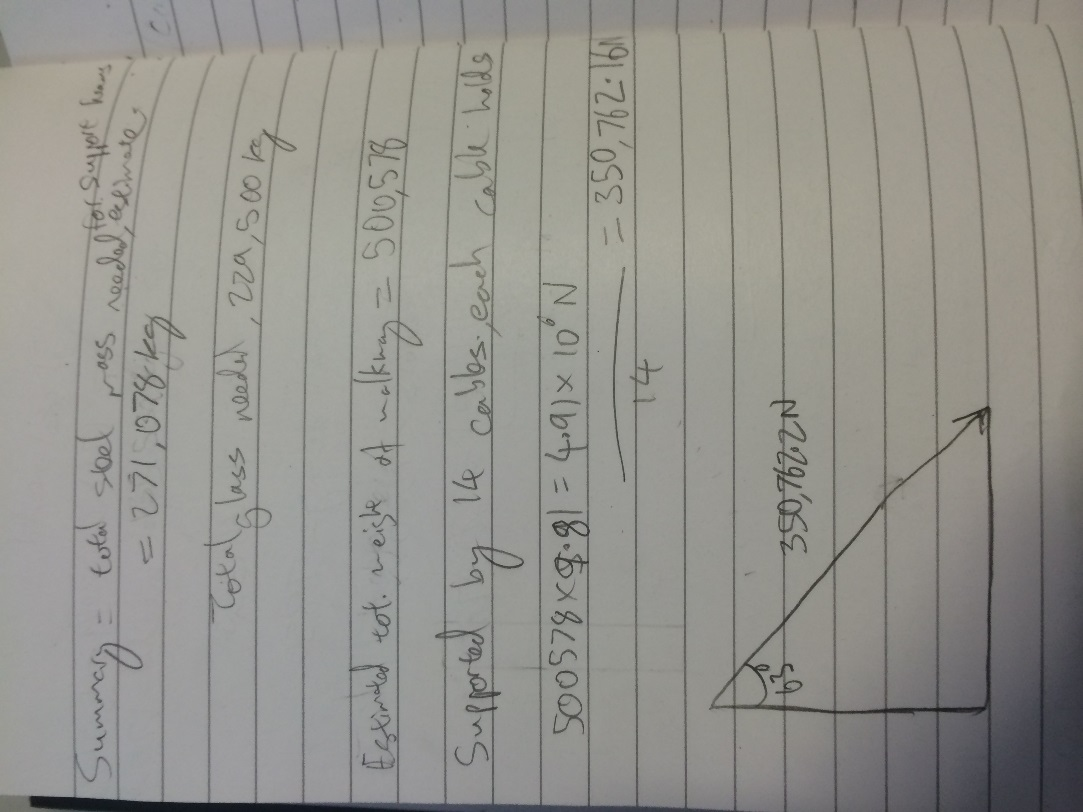 Summary = total steel mass needed for support beams, estimate,
= 271,078 kg
Total glass needed, 229,500 kg
Estimated tot. weight of walkway = 500,578
Supported by 14 cables, each cable holds
500578 x 9.81 = 4.91 x 10⁶ N
= 350,762.16N
14
350,762.2N
63°